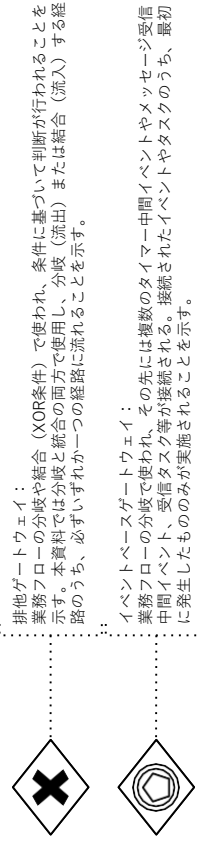 排他ゲートウェイ：
業務フローの分岐や結合（XOR条件）で使われ、条件に基づいて判断が行われることを
示す。本資料では分岐と統合の両方で使用し、分岐（流出）または結合（流入）する経
路のうち、必ずいずれか一つの経路に流れることを示す。
イベントベースゲートウェイ：
業務フローの分岐で使われ、その先には複数のタイマー中間イベントやメッセージ受信
中間イベント、受信タスク等が接続される。接続されたイベントやタスクのうち、最初
に発生したもののみが実施されることを示す。